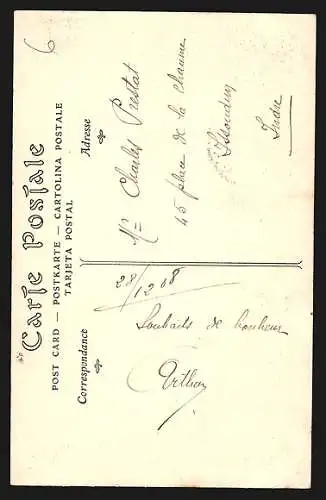 6
Carte Postale
POST CARD — POSTKARTE — CARTOLINA POSTALE
TARJETA POSTAL
Correspondance
Adresse
28/12 08
Souhaits de bonheur
Mr Charles Prestat
45 place de la Chaume
Issoudun
Indre